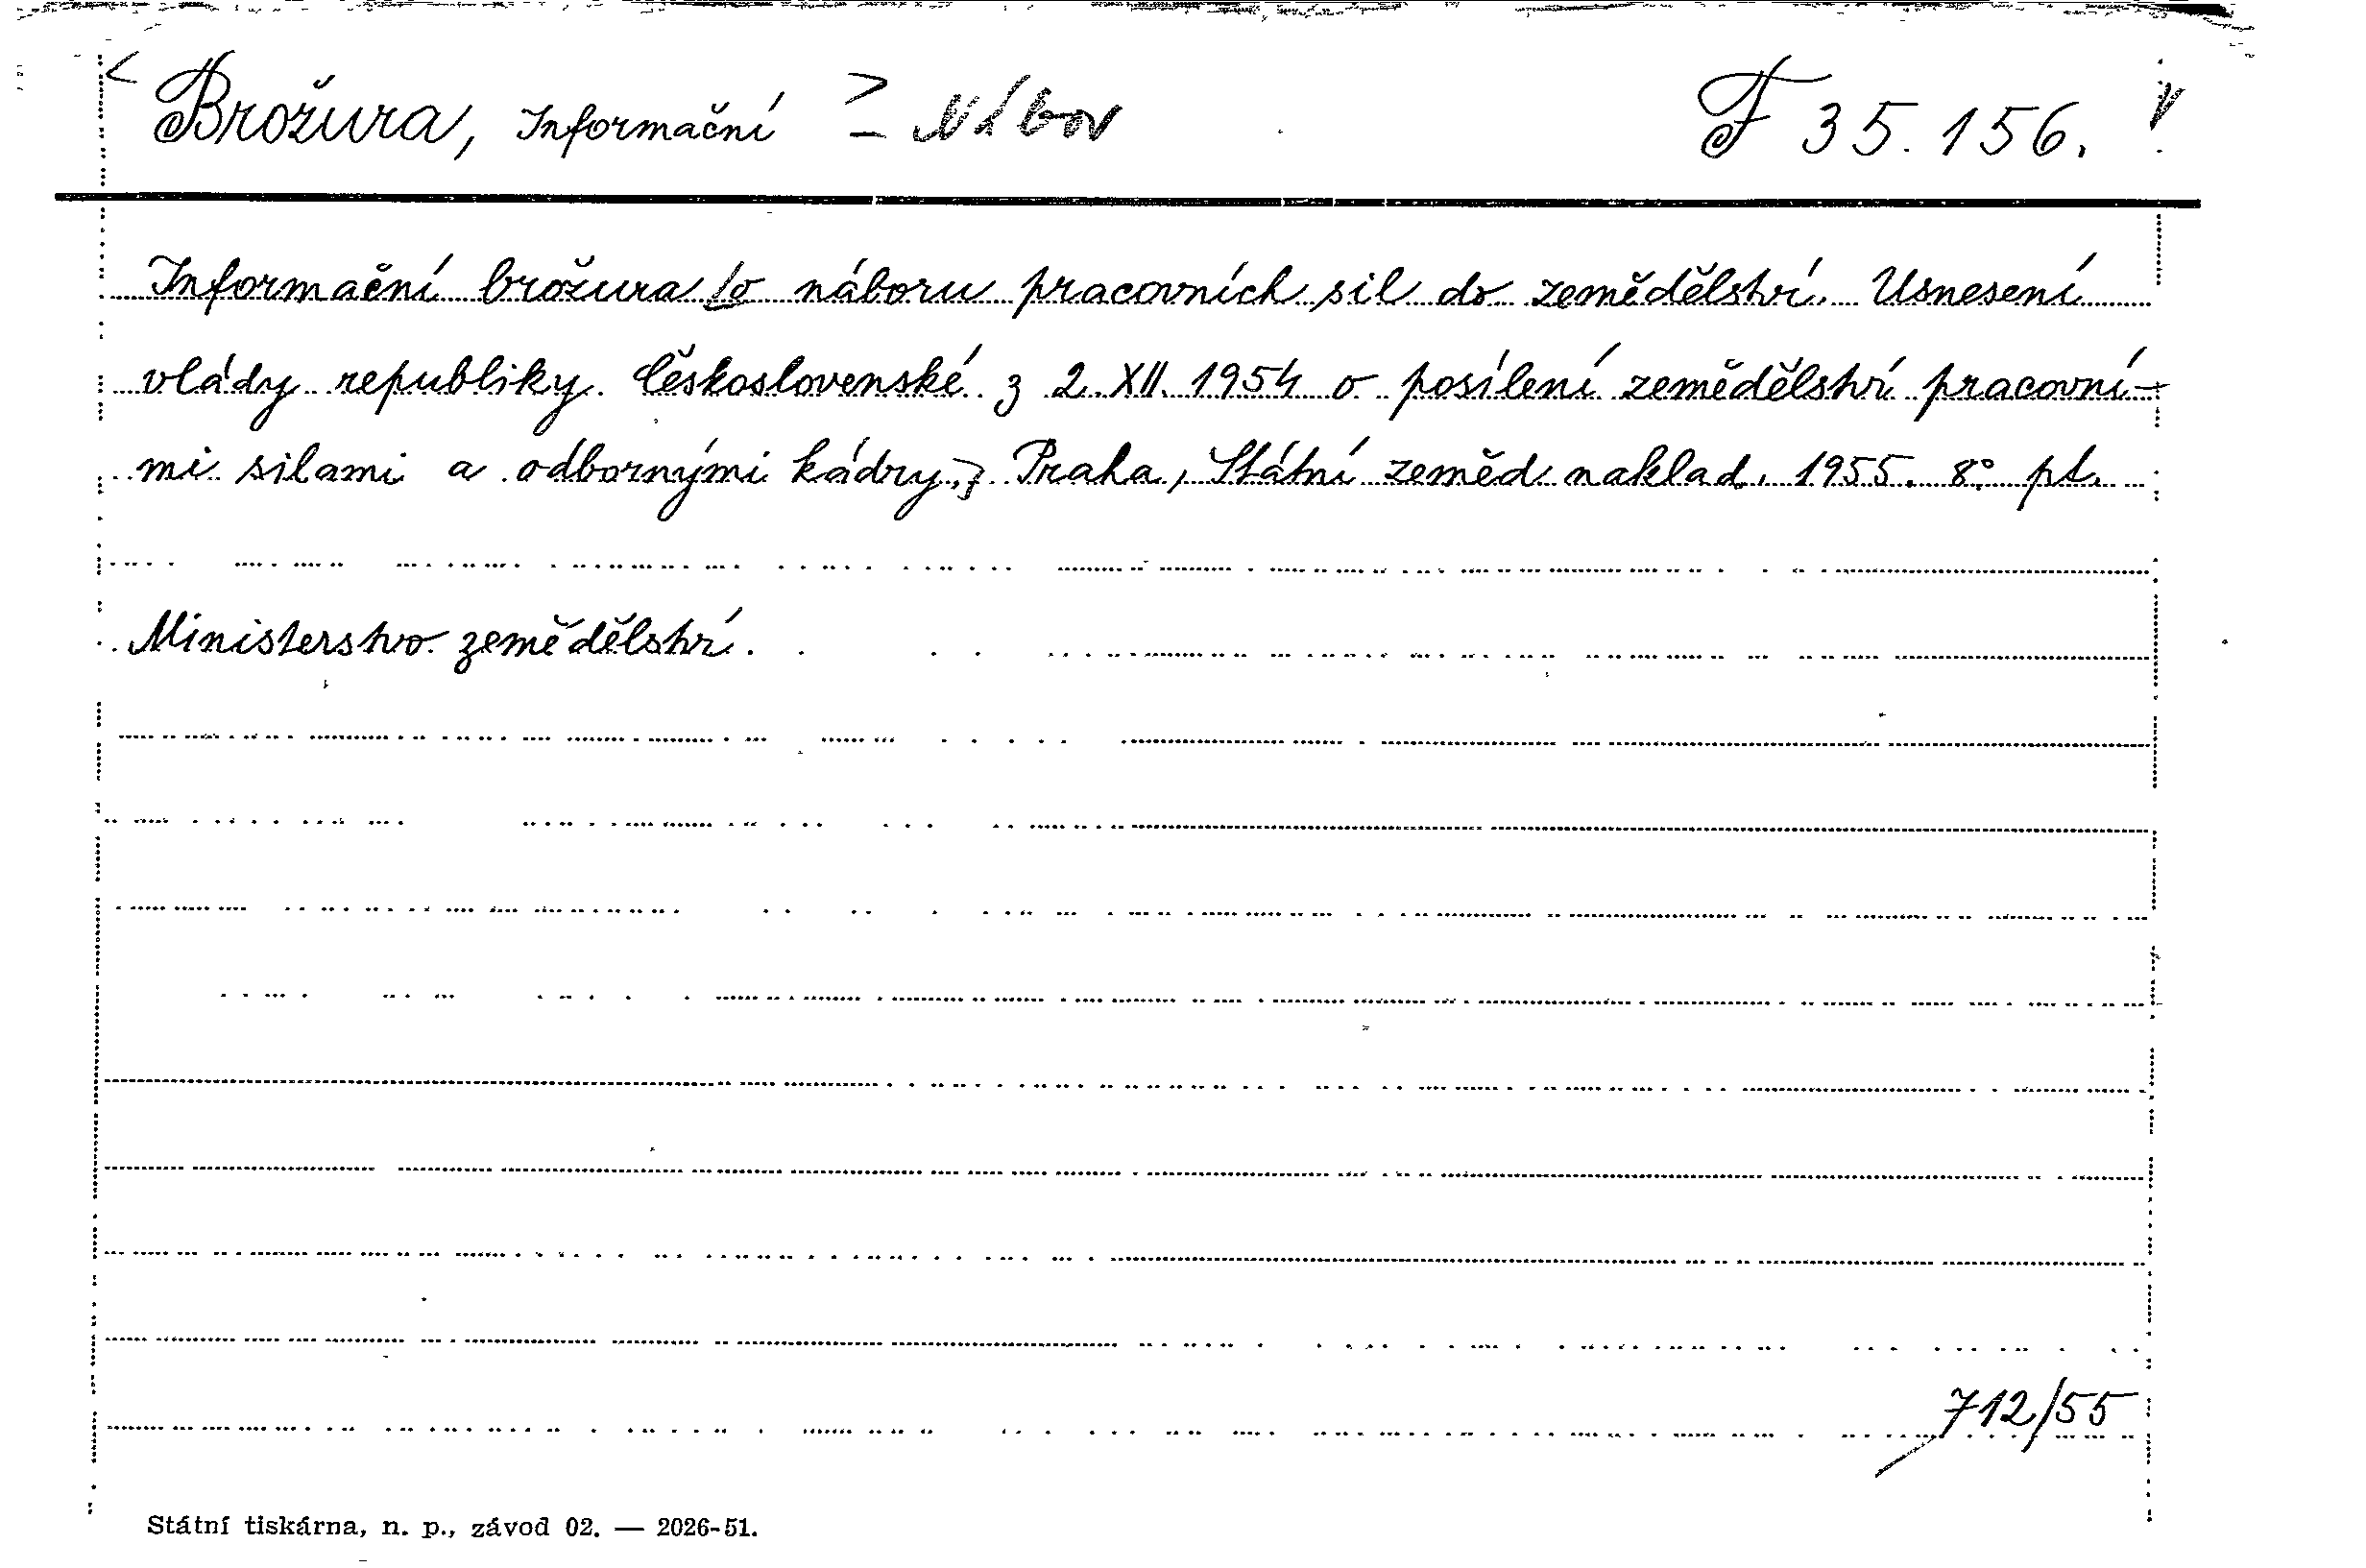 < Brožura, Informační > – Nábor F 35.156.
Informační brožura o náboru pracovních sil do zemědělství. Usnesení
vlády republiky Československé z 2. XII. 1954 o posílení zemědělství pracovní-
mi silami a odbornými kádry. Praha, Státní zeměd. naklad. 1955. 8° pt.
Ministerstvo zemědělství.
712/55
Státní tiskárna, n. p., závod 02. — 2026-51.